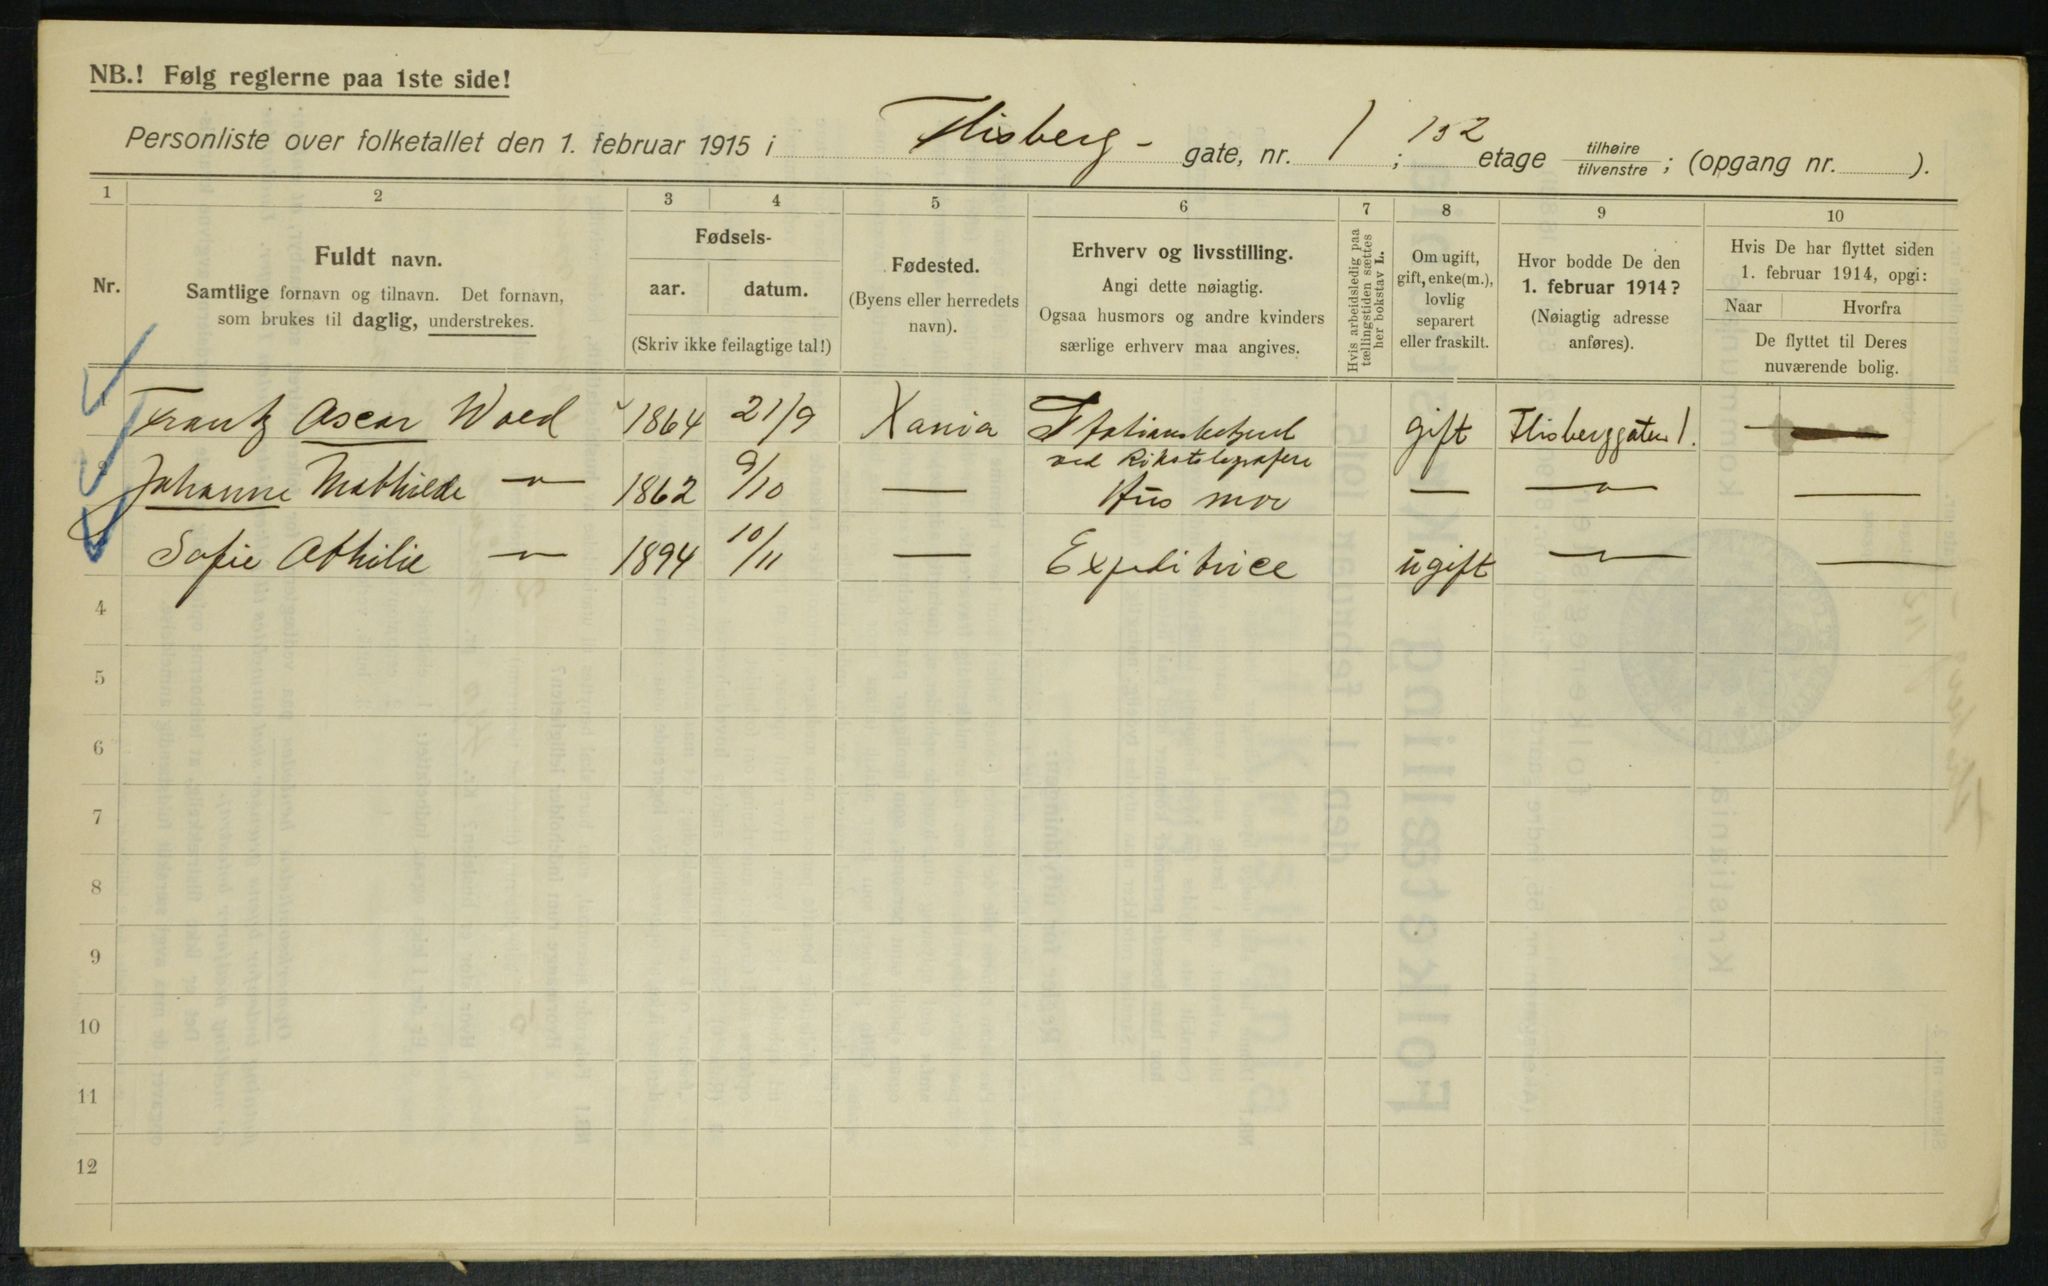 NB.! Følg reglerne paa 1ste side!
Personliste over folketallet den 1. februar 1915 i Flisberg- gate, nr. 1; 1s2 etage tilhøire/tilvenstre; (opgang nr. ).
1 2 3 4 5 6 7 8 9 10
Nr.
Fuldt navn.
Samtlige fornavn og tilnavn. Det fornavn,
som brukes til daglig, understrekes.
Fødsels-
aar. datum.
(Skriv ikke feilagtige tal!)
Fødested.
(Byens eller herredets
navn).
Erhverv og livsstilling.
Angi dette nøiagtig.
Ogsaa husmors og andre kvinders
særlige erhverv maa angives.
Hvis arbeidsledig paa
tællingstiden sættes
her bokstav L.
Om ugift,
gift, enke(m.),
lovlig
separert
eller fraskilt.
Hvor bodde De den
1. februar 1914?
(Nøiagtig adresse
anføres).
Hvis De har flyttet siden
1. februar 1914, opgi:
Naar Hvorfra
De flyttet til Deres
nuværende bolig.
Frantz Oscar Wold 1864 21/9 Xania gift Flisberggaten 1. —
ved Rikstelegrafen
Johanne Mathilde —"— 1862 9/10 — Hus mor — —"— —
Sofie Othilie —"— 1894 10/11 — Expeditrice ugift —"— —
4
5
6
7
8
9
10
11
12